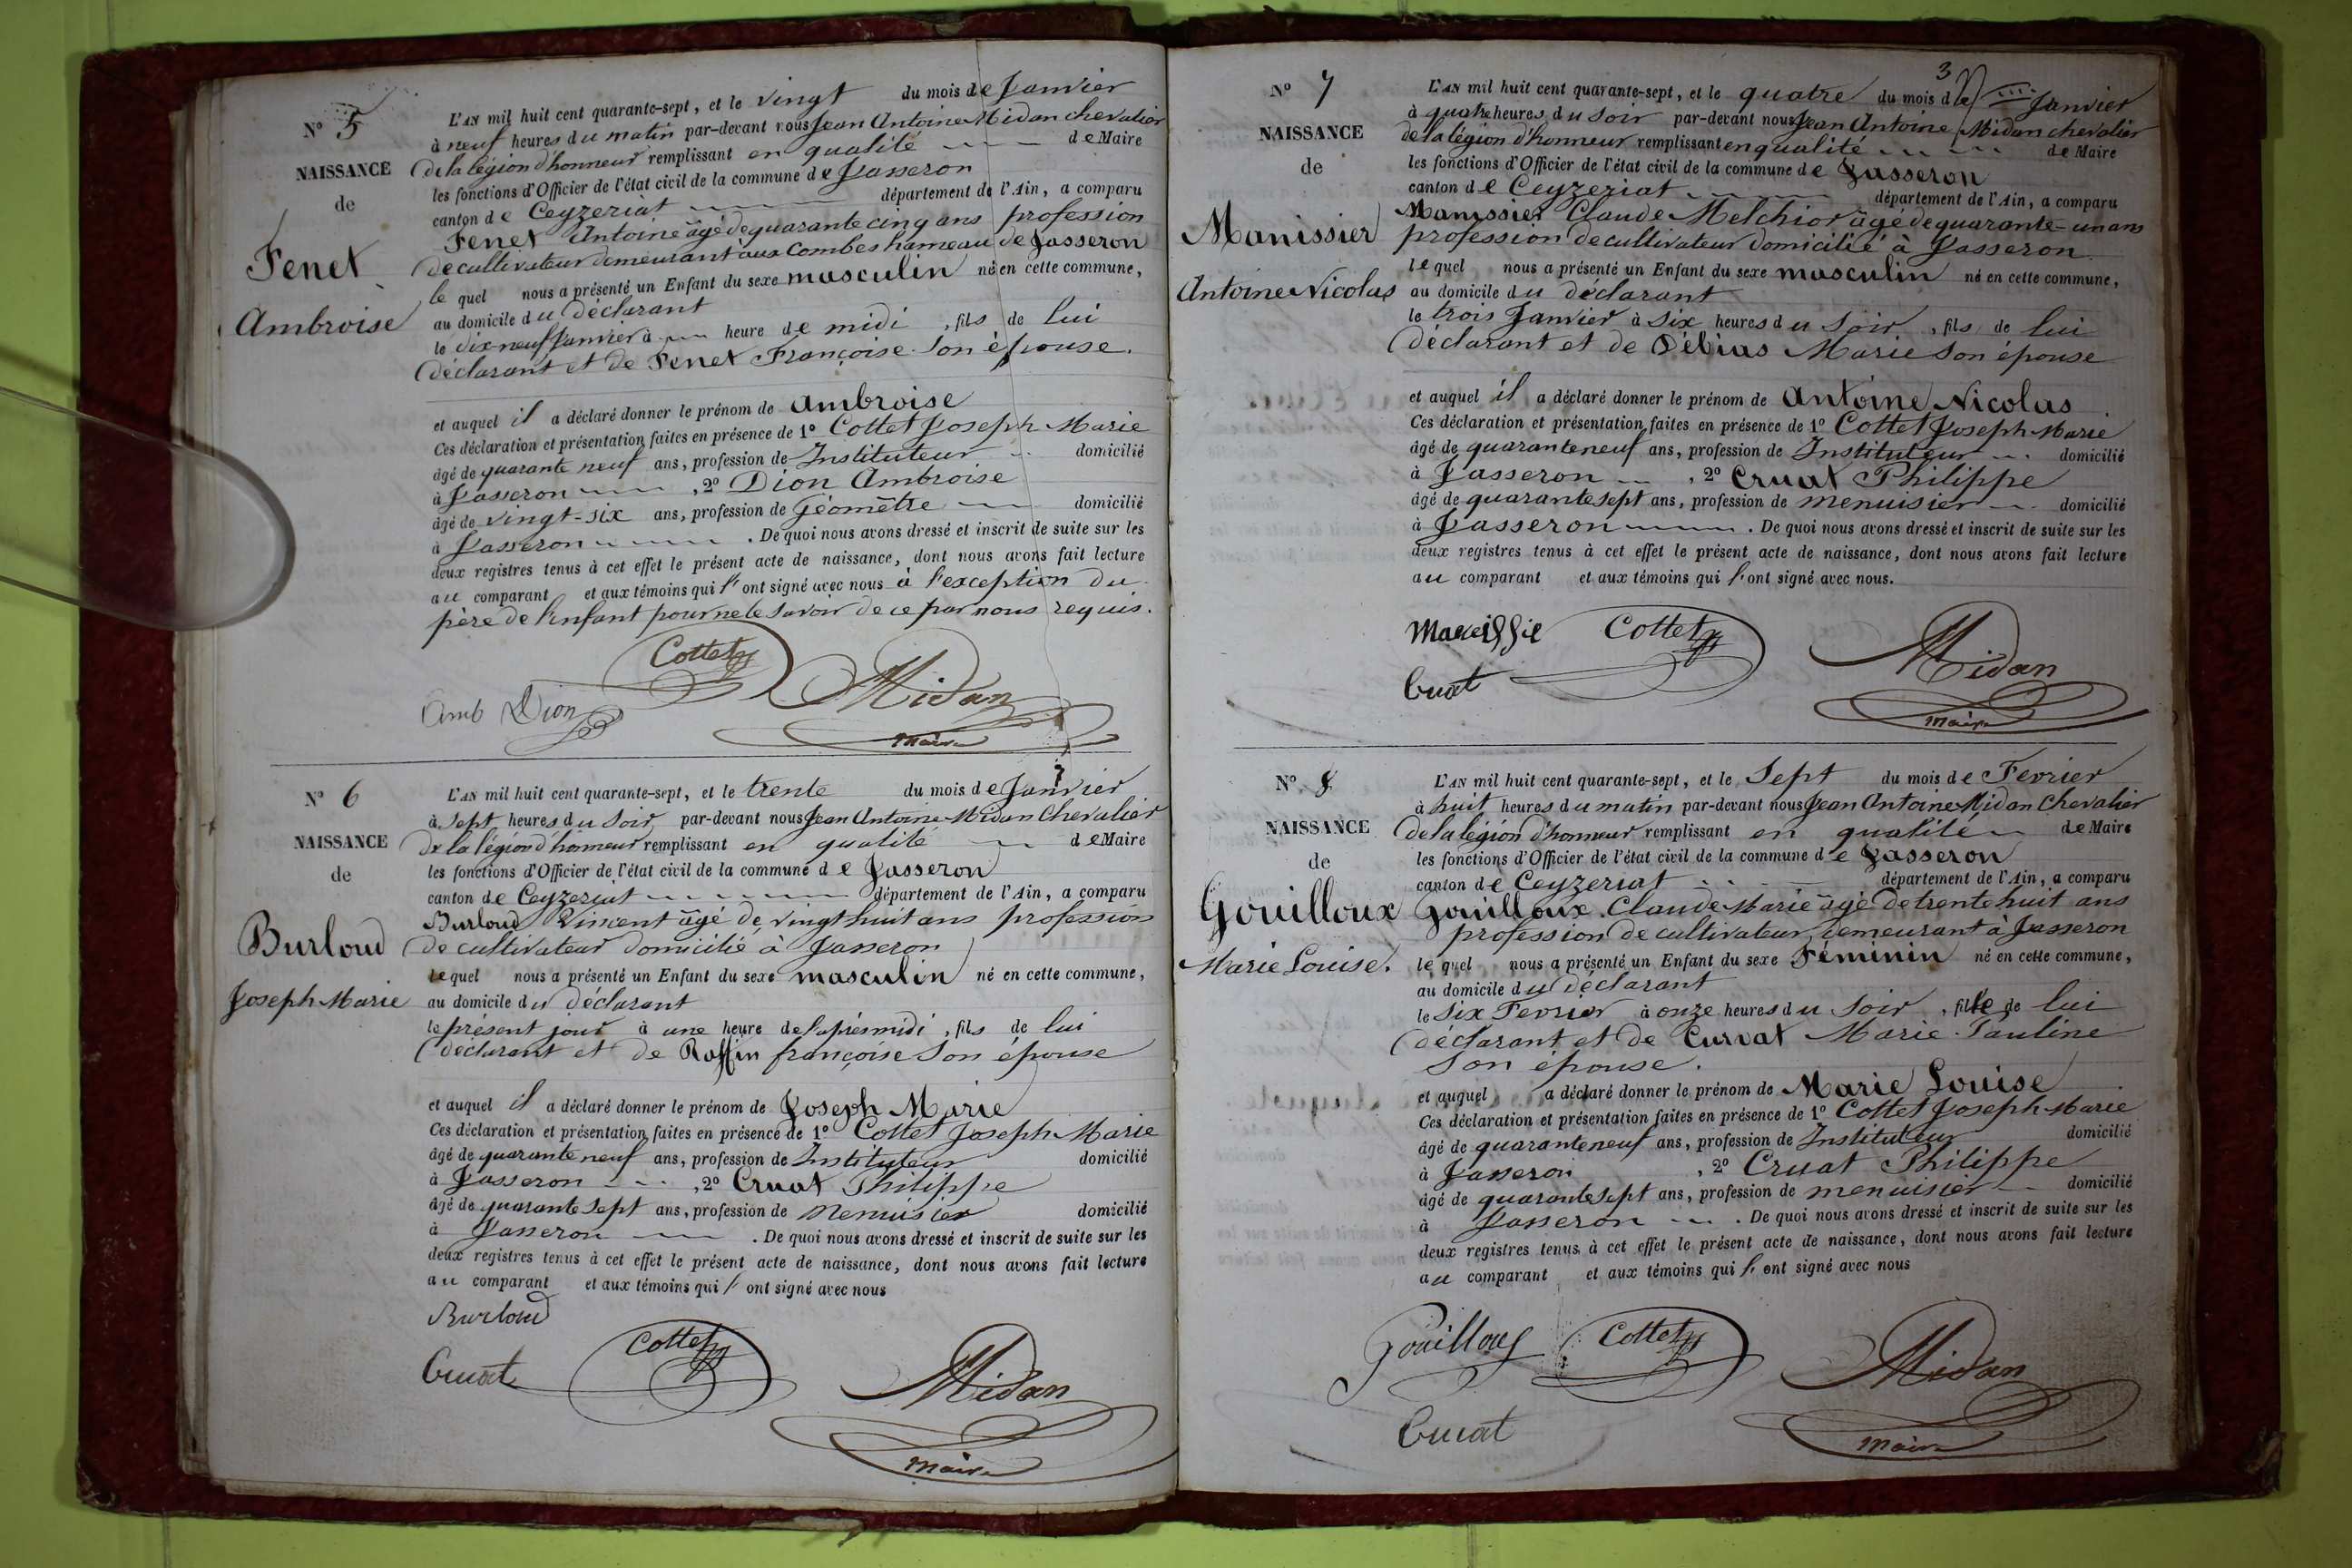 N° 5
NAISSANCE
de
Fenet
Ambroise
L'AN mil huit cent quarante-sept, et le vingt du mois de Janvier
à neuf heures du matin par-devant nous Jean Antoine Midan chevalier
de la légion d'honneur remplissant en qualité de Maire
les fonctions d'Officier de l'état civil de la commune de Jasseron
canton de Ceyzeriat département de l'Ain, a comparu
Fenet Antoine âgé de quarante cinq ans profession
de cultivateur demeurant aux Combes hameau de Jasseron
le quel nous a présenté un Enfant du sexe masculin né en cette commune,
au domicile du déclarant
le dix-neuf Janvier à heure de midi, fils de lui
déclarant et de Fenet Françoise son épouse.
et auquel il a déclaré donner le prénom de Ambroise
Ces déclaration et présentation faites en présence de 1° Cottet Joseph Marie
âgé de quarante neuf ans, profession de Instituteur domicilié
à Jasseron, 2° Dion Ambroise
âgé de vingt-six ans, profession de Géomètre domicilié
à Jasseron. De quoi nous avons dressé et inscrit de suite sur les
deux registres tenus à cet effet le présent acte de naissance, dont nous avons fait lecture
au comparant et aux témoins qui l'ont signé avec nous à l'exception du
père de l'enfant pour ne le savoir de ce par nous requis.
Cottet
Amb Dion Midan
Maire
7
N° 6
NAISSANCE
de
Burloud
Joseph Marie
L'AN mil huit cent quarante-sept, et le trente du mois de Janvier
à sept heures du soir par-devant nous Jean Antoine Midan Chevalier
de la légion d'honneur remplissant en qualité de Maire
les fonctions d'Officier de l'état civil de la commune de Jasseron
canton de Ceyzeriat département de l'Ain, a comparu
Burloud Vincent âgé de vingt huit ans profession
de cultivateur domicilié à Jasseron
lequel nous a présenté un Enfant du sexe masculin né en cette commune,
au domicile du déclarant
le présent jour à une heure de l'après midi, fils de lui
déclarant et de Roffin françoise son épouse
et auquel il a déclaré donner le prénom de Joseph Marie
Ces déclaration et présentation faites en présence de 1° Cottet Joseph Marie
âgé de quarante neuf ans, profession de Instituteur domicilié
à Jasseron, 2° Cruat Philippe
âgé de quarante sept ans, profession de menuisier domicilié
à Jasseron. De quoi nous avons dressé et inscrit de suite sur les
deux registres tenus à cet effet le présent acte de naissance, dont nous avons fait lecture
au comparant et aux témoins qui l'ont signé avec nous
Burloud
Cruat Cottet Midan
Maire
3
N° 7
NAISSANCE
de
Manissier
Antoine Nicolas
L'AN mil huit cent quarante-sept, et le quatre du mois de Janvier
à quatre heures du soir par-devant nous Jean Antoine Midan chevalier
de la légion d'honneur remplissant en qualité de Maire
les fonctions d'Officier de l'état civil de la commune de Jasseron
canton de Ceyzeriat département de l'Ain, a comparu
Manissier Claude Melchior âgé de quarante-un ans
profession de cultivateur domicilié à Jasseron
lequel nous a présenté un Enfant du sexe masculin né en cette commune,
au domicile du déclarant
le trois Janvier à six heures du soir, fils de lui
déclarant et de Débias Marie son épouse
et auquel il a déclaré donner le prénom de Antoine Nicolas
Ces déclaration et présentation faites en présence de 1° Cottet Joseph Marie
âgé de quarante neuf ans, profession de Instituteur domicilié
à Jasseron, 2° Cruat Philippe
âgé de quarante sept ans, profession de menuisier domicilié
à Jasseron. De quoi nous avons dressé et inscrit de suite sur les
deux registres tenus à cet effet le présent acte de naissance, dont nous avons fait lecture
au comparant et aux témoins qui l'ont signé avec nous.
Cottet Midan
Cruat
Maire
N° 8
NAISSANCE
de
Gouilloux
Marie Louise.
L'AN mil huit cent quarante-sept, et le Sept du mois de Fevrier
à huit heures du matin par-devant nous Jean Antoine Midan chevalier
de la légion d'honneur remplissant en qualité de Maire
les fonctions d'Officier de l'état civil de la commune de Jasseron
canton de Ceyzeriat département de l'Ain, a comparu
Gouilloux Claude Marie âgé de trente huit ans
profession de cultivateur demeurant à Jasseron
le quel nous a présenté un Enfant du sexe Féminin né en cette commune,
au domicile du déclarant
le six Fevrier à onze heures du soir, fille de lui
déclarant et de Curvat Marie Pauline
son épouse.
et auquel a déclaré donner le prénom de Marie Louise
Ces déclaration et présentation faites en présence de 1° Cottet Joseph Marie
âgé de quarante neuf ans, profession de Instituteur domicilié
à Jasseron, 2° Cruat Philippe
âgé de quarante sept ans, profession de menuisier domicilié
à Jasseron. De quoi nous avons dressé et inscrit de suite sur les
deux registres tenus à cet effet le présent acte de naissance, dont nous avons fait lecture
au comparant et aux témoins qui l'ont signé avec nous
Gouilloux Cottet Midan
Cruat Maire